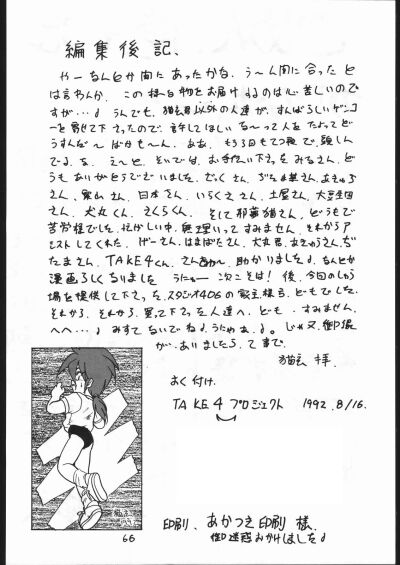 編集後記、
やーなんとか間にあったかな、う〜ん間に合ったと
は言わんか、この様な物をお届けするのは心苦しいのです
が…♪ うんでも、猫玄君以外の人達が、すばらしいゲンコ
ーを寄せて下さったので、許してほしいな〜って人をたよってど
うすんだ〜 ばかも〜ん、ああ、もう3日もてつ夜で、頭しん
でるな、え〜と、それでは、お手伝い下さったみなさん、ど
うもありがとうございました、
さん、栗山さん、日本さん、いちらくさん、土屋さん、大豆生田
さん、犬丸くん、さくらくん、そして那夢猫さん、どうもご
苦労様でした、忙がしい中、無理いってすみません、それからア
シストしてくれた、げーさん、はまぱたさん、犬丸君、おきゅうさん、ぢ
たまさん、TAKE4くん、さん 助かりました♪ なんとか
漫画らしくなりました うにゅ〜 次こそは! 後、今回のしゅら
場を提供して下さった、スタジオ4DSの家主様ら、どもでした、
それから、それから、買って下さった人達へ、ども、すみません、
へへ…♪ みすてないでね♪ うにゃあ…♪。じゃ又、御縁
が、ありましたらってことで、
猫玄 拝、
おく付け、
TAKE4プロジェクト 1992.8/16.
印刷、あかつき印刷 様、
御迷惑おかけしました♪
66